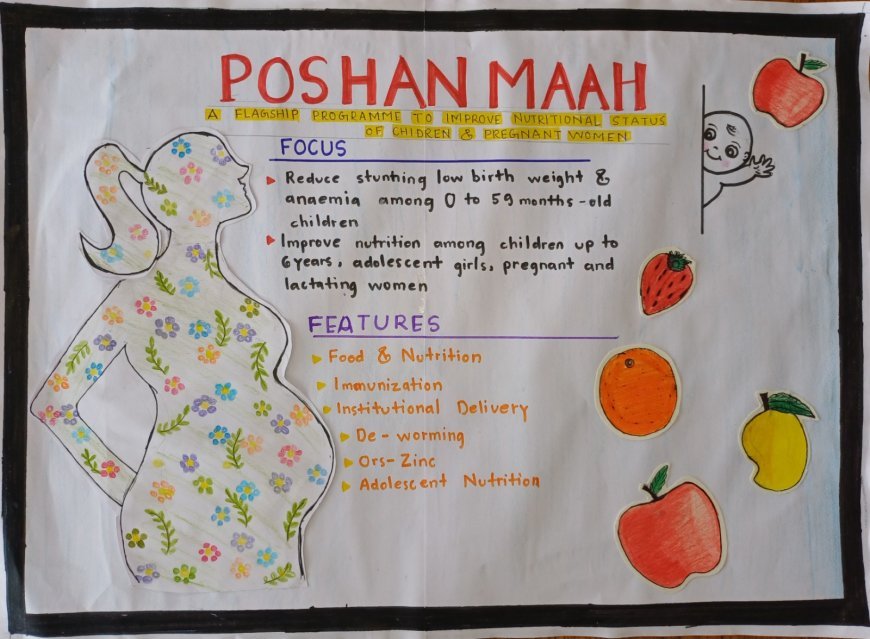 POSHAN MAAH
A FLAGSHIP PROGRAMME TO IMPROVE NUTRITIONAL STATUS
OF CHIDREN & PREGNANT WOMEN
FOCUS
Reduce stunting low birth weight &
anaemia among 0 to 59 months-old
children
Improve nutrition among children up to
6 years, adolescent girls, pregnant and
lactating women
FEATURES
Food & Nutrition
Immunization
Institutional Delivery
De-worming
Ors-Zinc
Adolescent Nutrition